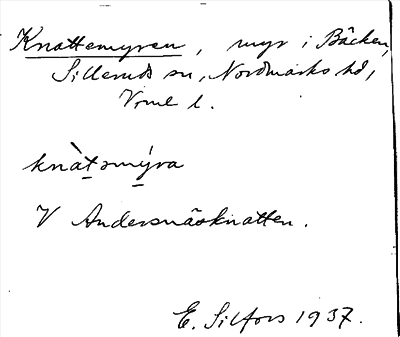 Knattemyren, myr i Bäcken,
Silleruds sn, Nordmarks hd,
Vrml l.
knàtəmýra
V Andersnäsknatten.
E. Silfors 1937.